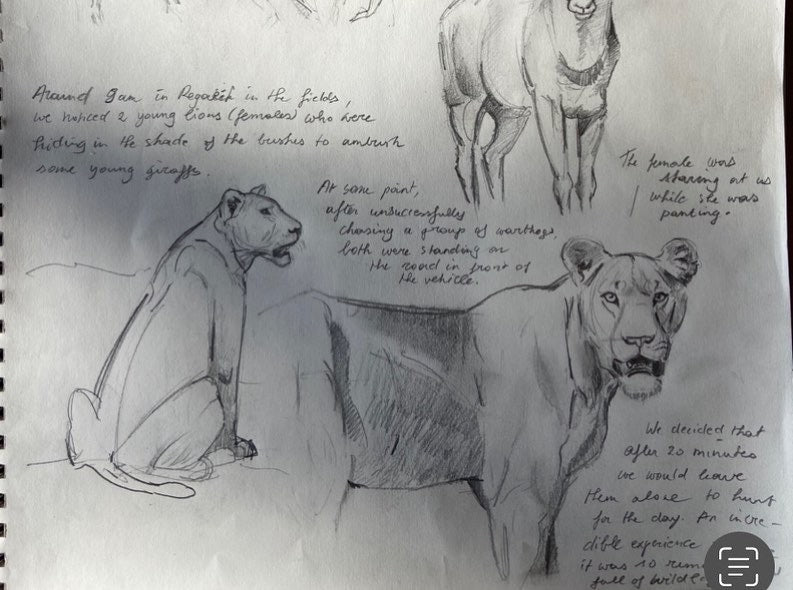 Around 9am in in the fields,
we noticed 2 young lions (females) who were
hiding in the shade of the bushes to ambush
some young giraffs.
At some point,
after unsuccessfully
chasing a group of warthogs,
both were standing on
the road in front of
the vehicle.
The female was
staring at us
while she was
panting.
We decided that
after 20 minutes
we would leave
them alone to hunt
for the day. An incre-
dible experience
it was so
full of